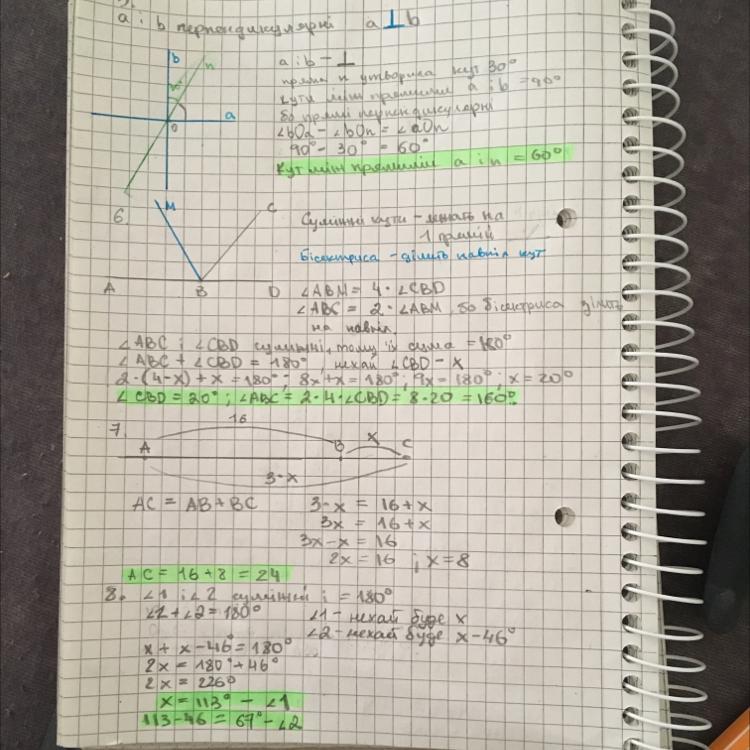 a і b перпендикулярні a⊥b
b n
30°
a
O
a і b - ⊥
пряма n утворила кут 30°
кути між прямими a і b = 90°
бо прямі перпендикулярні
∠bOa - ∠bOn = ∠aOn
90° - 30° = 60°
Кут між прямими a і n = 60°
6.
M C
A B D
Суміжні кути - лежать на
1 прямій
бісектриса - ділить навпіл кут
∠ABM = 4 · ∠CBD
∠ABC = 2 · ∠ABM, бо бісектриса ділить
на навпіл.
∠ABC і ∠CBD суміжні, тому їх сума = 180°
∠ABC + ∠CBD = 180°, нехай ∠CBD - x
2·(4-x)+x = 180°; 8x+x = 180°; 9x = 180°; x = 20°
∠CBD = 20°; ∠ABC = 2·4·∠CBD = 8·20 = 160°.
7.
16
A B x C
3·x
AC = AB + BC
3·x = 16+x
3x = 16+x
3x-x = 16
2x = 16; x=8
AC = 16+8 = 24
8. ∠1 і ∠2 суміжні і = 180°
∠1+∠2 = 180°
∠1 - нехай буде x
∠2 - нехай буде x-46°
x + x - 46° = 180°
2x = 180°+46°
2x = 226°
x = 113° - ∠1
113-46 = 67° - ∠2